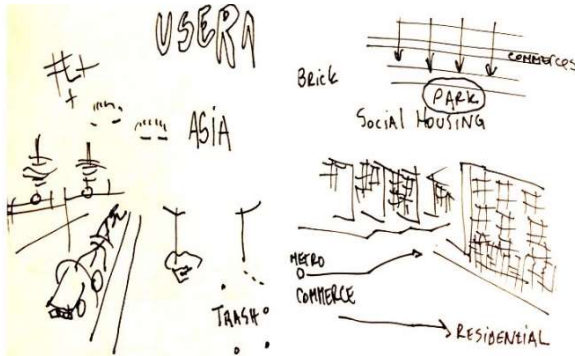 USERA
ASIA
TRASH
COMMERCES
Brick
PARK
Social HOUSING
METRO
COMMERCE
RESIDENTIAL